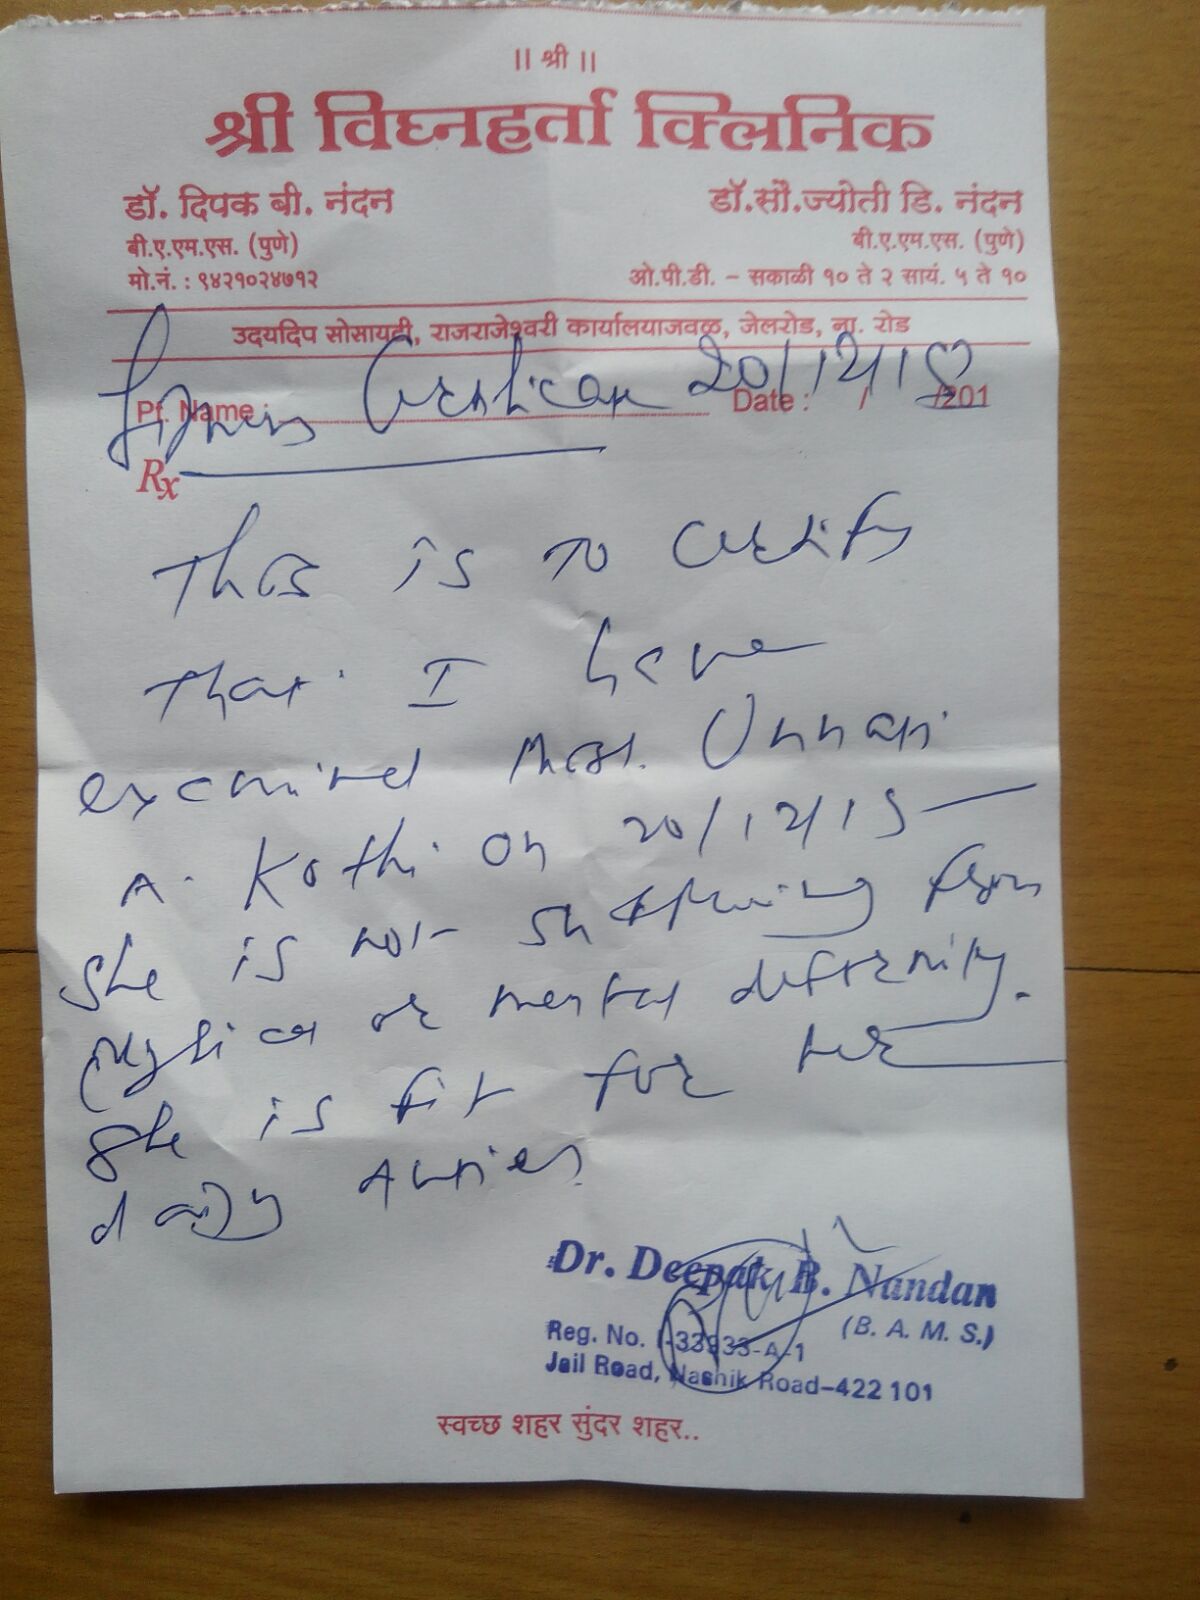 || श्री ||
श्री विघ्नहर्ता क्लिनिक
डॉ. दिपक बी. नंदन
बी.ए.एम.एस. (पुणे)
मो.नं. : ९४२१०२४७१२
डॉ.सौ.ज्योती डि. नंदन
बी.ए.एम.एस. (पुणे)
ओ.पी.डी. - सकाळी १० ते २ सायं. ५ ते १०
उदयदिप सोसायटी, राजराजेश्वरी कार्यालयाजवळ, जेलरोड, ना. रोड
Fitness Certificate 20/12/15
Pt. Name : Date : / /201
Rx
This is to certify
that I have
examined Unnati
A. Kothi on 20/12/15
she is not suffering from
physical or mental deformity.
She is fit for her
daily duties
Dr. Deepak B. Nandan
(B. A. M. S.)
Reg. No. I-33933-A-1
Jail Road, Nashik Road-422 101
स्वच्छ शहर सुंदर शहर..